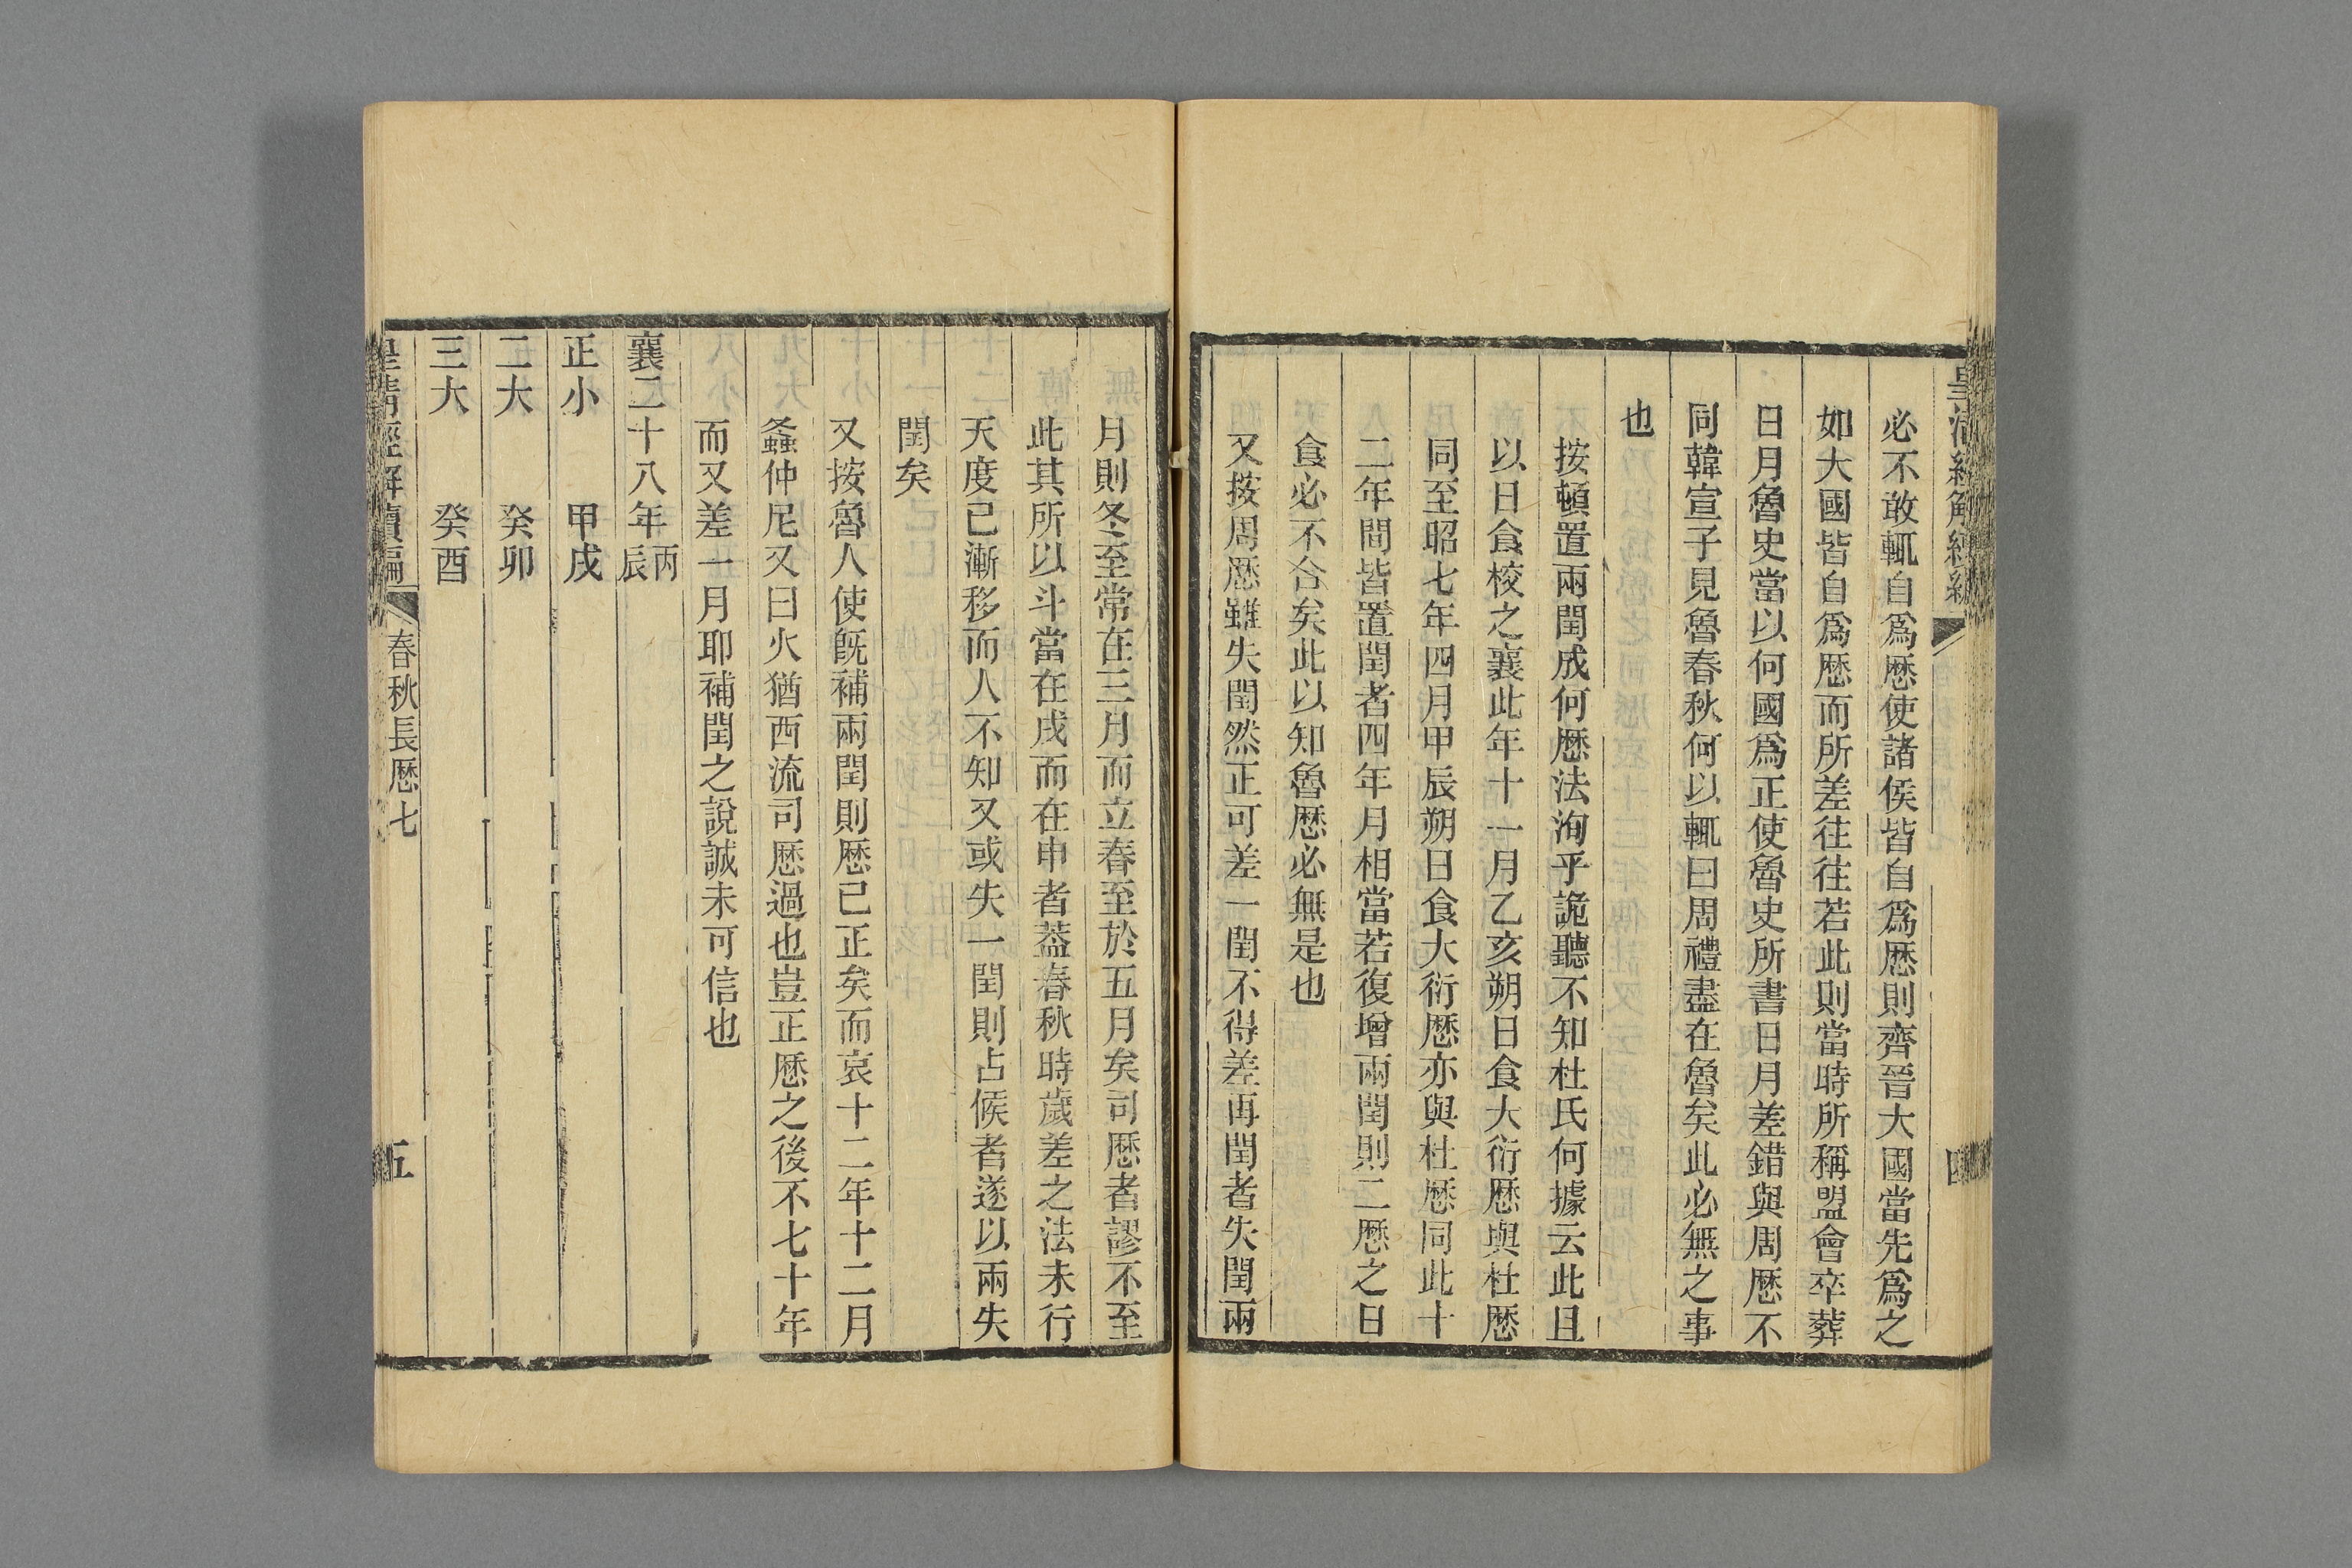 必不敢輒自爲厯使諸侯皆自爲厯則齊晉大國當先爲之
如大國皆自爲厯而所差往往若此則當時所稱盟會卒葬
日月魯史當以何國爲正使魯史所書日月差錯與周厯不
同韓宣子見魯春秋何以輒曰周禮盡在魯矣此必無之事
也
按頓置兩閏成何厯法洵乎詭聽不知杜氏何據云此且
以日食校之襄此年十一月乙亥朔日食大衍厯與杜厯
同至昭七年四月甲辰朔日食大衍厯亦與杜厯同此十
二年間皆置閏者四年月相當若復增兩閏則二厯之日
食必不合矣此以知魯厯必無是也
又按周厯雖失閏然正可差一閏不得差再閏者失閏兩
四
月則冬至常在三月而立春至於五月矣司厯者謬不至
此其所以斗當在戌而在申者葢春秋時歲差之法未行
天度已漸移而人不知又或失一閏則占候者遂以兩失
閏矣
又按魯人使旣補兩閏則厯已正矣而哀十二年十二月
螽仲尼又曰火猶西流司厯過也豈正厯之後不七十年
而又差一月耶補閏之說誠未可信也
襄二十八年丙辰
正小 甲戌
二大 癸卯
三大 癸酉
皇清經解續編 春秋長厯七 五